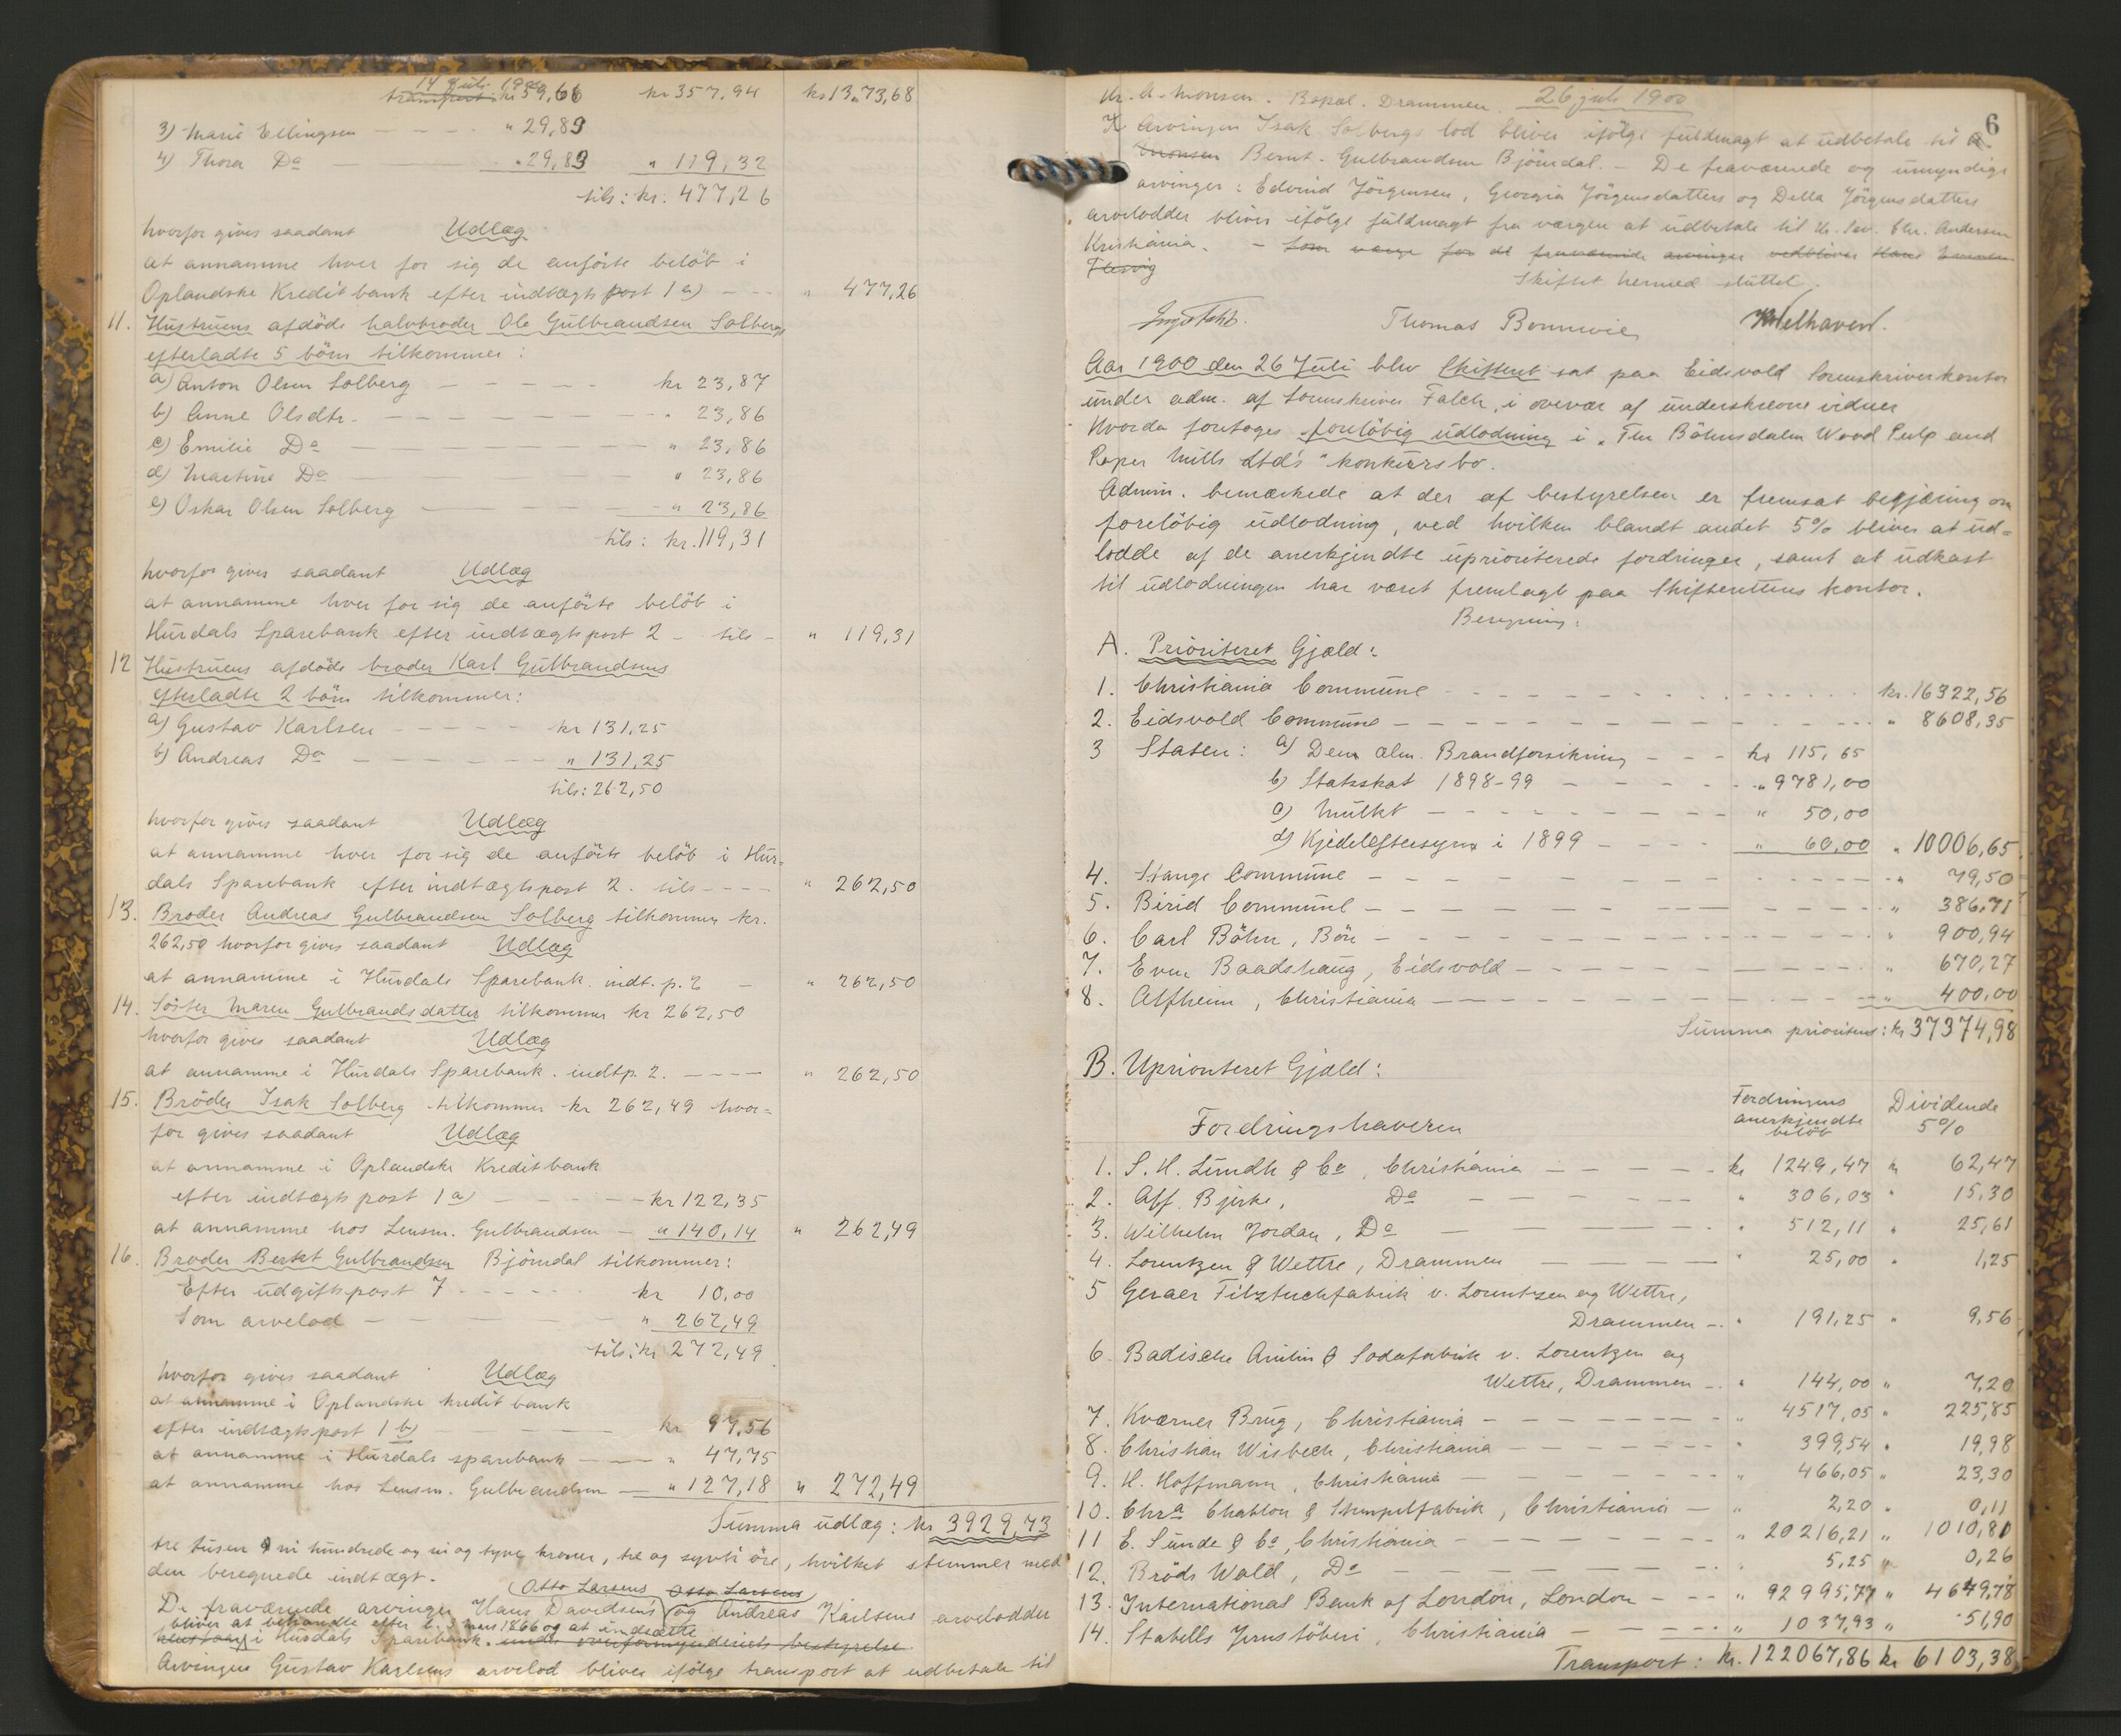 14 Juli 1900
transport: kr 59,66 kr 357,94 kr 1373,68
3) Marie Ellingsen — — — " 29,83
4) Thora Do — — " 29,83 " 119,32
tils: kr. 477,26
hvorfor gives saadant Udlæg
at annamme hver for sig de anførte beløb i
Oplandske Kreditbank efter indtægtspost 1 a) — — " 477,26
11. Hustruens afdøde halvbroder Ole Gulbrandsen Solbergs
efterladte 5 børn tilkommer:
a) Anton Olsen Solberg — — — kr 23,87
b) Anne Olsdtr. — — — " 23,86
c) Emilie Do — — — " 23,86
d) Martine Do — — — " 23,86
e) Oskar Olsen Solberg — — — " 23,86
tils: kr. 119,31
hvorfor gives saadant Udlæg
at annamme hver for sig de anførte beløb i
Hurdals Sparebank efter indtægtspost 2 – tils – " 119,31
12 Hustruens afdøde broder Karl Gulbrandsens
efterladte 2 børn tilkommer:
a) Gustav Karlsen — — — kr 131,25
b) Andreas Do — — — " 131,25
tils: 262,50
hvorfor gives saadant Udlæg
at annamme hver for sig de anførte beløb i Hur=
dals Sparebank efter indtægtspost 2. tils — — " 262,50
13. Broder Andreas Gulbrandsen Solberg tilkommer kr.
262,50 hvorfor gives saadant Udlæg
at annamme i Hurdals Sparebank. indt. p. 2 — " 262,50
14. Søster Maren Gulbrandsdatter tilkommer kr 262,50
hvorfor gives saadant Udlæg
at annamme i Hurdals Sparebank. indtp. 2. — — " 262,50
15. Broder Isak Solberg tilkommer kr 262,49 hvor=
for gives saadant Udlæg
at annamme i Oplandske Kreditbank
efter indtægtspost 1 a) — — — kr 122,35
at annamme hos Lensm. Gulbrandsen — " 140,14 " 262,49
16. Broder Berent Gulbrandsen Bjørndal tilkommer:
Efter udgiftspost 7 — — — kr 10,00
Som arvelod — — — " 262,49
tils: kr 272,49
hvorfor gives saadant Udlæg
at annamme i Oplandske kreditbank
efter indtægtspost 1 b) — — — kr 97,56
at annamme i Hurdals sparebank — — " 47,75
at annamme hos Lensm. Gulbrandsen — " 127,18 " 272,49
Summa udlæg: kr 3929,73
tre tusen ni hundrede og ni og tyve kroner, tre og sytti øre, hvilket stemmer med
den beregnede indtægt.
(Otto Larsens Otto Larsens)
De fraværende arvinger Hans Davidsens og Andreas Karlsens arvelodder
bliver at behandle efter l. 3 mars 1866 og at indsætte
i Hurdals Sparebank. under overformynderiets bestyrelse.
Arvingen Gustav Karlsens arvelod bliver ifølge transport at udbetale til
hr. A. Monsen. Bopæl. Drammen. 26 juli 1900
6
Arvingen Isak Solbergs lod bliver ifølge fuldmagt at udbetale til A.
Monsen Bernt. Gulbrandsen Bjørndal. – De fraværende og umyndige
arvinger: Edvind Jørgensen, Georgia Jørgensdatters og Della Jørgensdatters
arvelodder bliver ifølge fuldmagt fra værgen at udbetale til hr. Sev. Chr. Andersen
Kristiania. – Som værge for de fraværende arvinger vedbliver Hans
Flesvig
Skiftet hermed sluttet.
Thomas Bonnevie Welhaven.
Aar 1900 den 26 Juli blev Skifteret sat paa Eidsvold Sorenskriverkontor
under adm. af Sorenskriver Falch, i overvær af underskrevne vidner
Hvorda foretoges foreløbig udlodning i „The Bøhnsdalen Wood Pulp and
Paper Mills Ltd's" konkursbo.
Admin. bemærkede at der af bestyrelsen er fremsat begjæring om
foreløbig udlodning, ved hvilken blandt andet 5% bliver at ud=
lodde af de anerkjendte uprioriterede fordringer, samt at udkast
til udlodningen har været fremlagt paa Skifterettens kontor.
Beregning:
A. Prioriteret Gjæld:
1. Christiania Commune — — — kr. 16322,56
2. Eidsvold Commune — — — " 8608,35
3 Staten: a) Den alm. Brandforsikring — — kr 115,65
b) Statsskat 1898-99 — — — " 9781,00
c) Mulkt — — — " 50,00
d) Kjedeleftersyn i 1899 — — " 60,00 " 10006,65
4. Stange Commune — — — " 79,50
5. Birid Commune — — — " 386,71
6. Carl Bøhn, Bøn — — — " 900,94
7. Even Baadshaug, Eidsvold — — — " 670,27
8. Alfheim, Christiania — — — " 400,00
Summa prioritert: kr 37374,98
B. Uprioriteret Gjæld:
Fordringshaveren Fordringens anerkjendte beløb Dividende 5%
1. S. H. Lundh & Co, Christiania — — — kr 1249,47 kr 62,47
2. Aff. Bjerke, Do — — — " 306,03 " 15,30
3. Wilhelm Jordan, Do — — — " 512,11 " 25,61
4. Lorentzen & Wettre, Drammen — — — " 25,00 " 1,25
5 Geraer Filztuchfabrik v. Lorentzen og Wettre,
Drammen — " 191,25 " 9,56
6. Badische Anilin & Sodafabrik v. Lorentzen og
Wettre, Drammen — " 144,00 " 7,20
7. Kværner Brug, Christiania — — — " 4517,05 " 225,85
8. Christian Wisbech, Christiania — — — " 399,54 " 19,98
9. H. Hoffmann, Christiania — — — " 466,05 " 23,30
10. Chra Chablon & Stempelfabrik, Christiania — " 2,20 " 0,11
11 E. Sunde & Co, Christiania — — — " 20216,21 " 1010,81
12. Brødr Wald, Do — — — " 5,25 " 0,26
13. International Bank of London, London — — " 92995,77 " 4649,78
14. Stabells Jernstøberi, Christiania — — — " 1037,93 " 51,90
Transport: kr. 122067,86 kr 6103,38